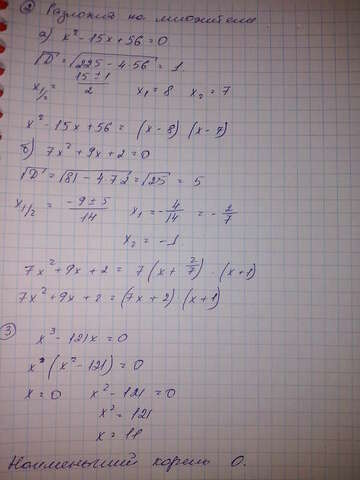 ② Разложит на множители.
а) x² - 15x + 56 = 0
√D = √225 - 4·56 = 1.
x₁/₂ = 15 ± 1 / 2   x₁ = 8   x₂ = 7
x² - 15x + 56 = (x - 8) (x - 7)
б) 7x² + 9x + 2 = 0
√D = √81 - 4·7·2 = √25 = 5
x₁/₂ = -9 ± 5 / 14   x₁ = -4/14 = -2/7
x₂ = -1
7x² + 9x + 2 = 7(x + 2/7) · (x + 1)
7x² + 9x + 2 = (7x + 2) · (x + 1)
③
x³ - 121x = 0
x (x² - 121) = 0
x = 0   x² - 121 = 0
x² = 121
x = 11
Наименьший корень 0.